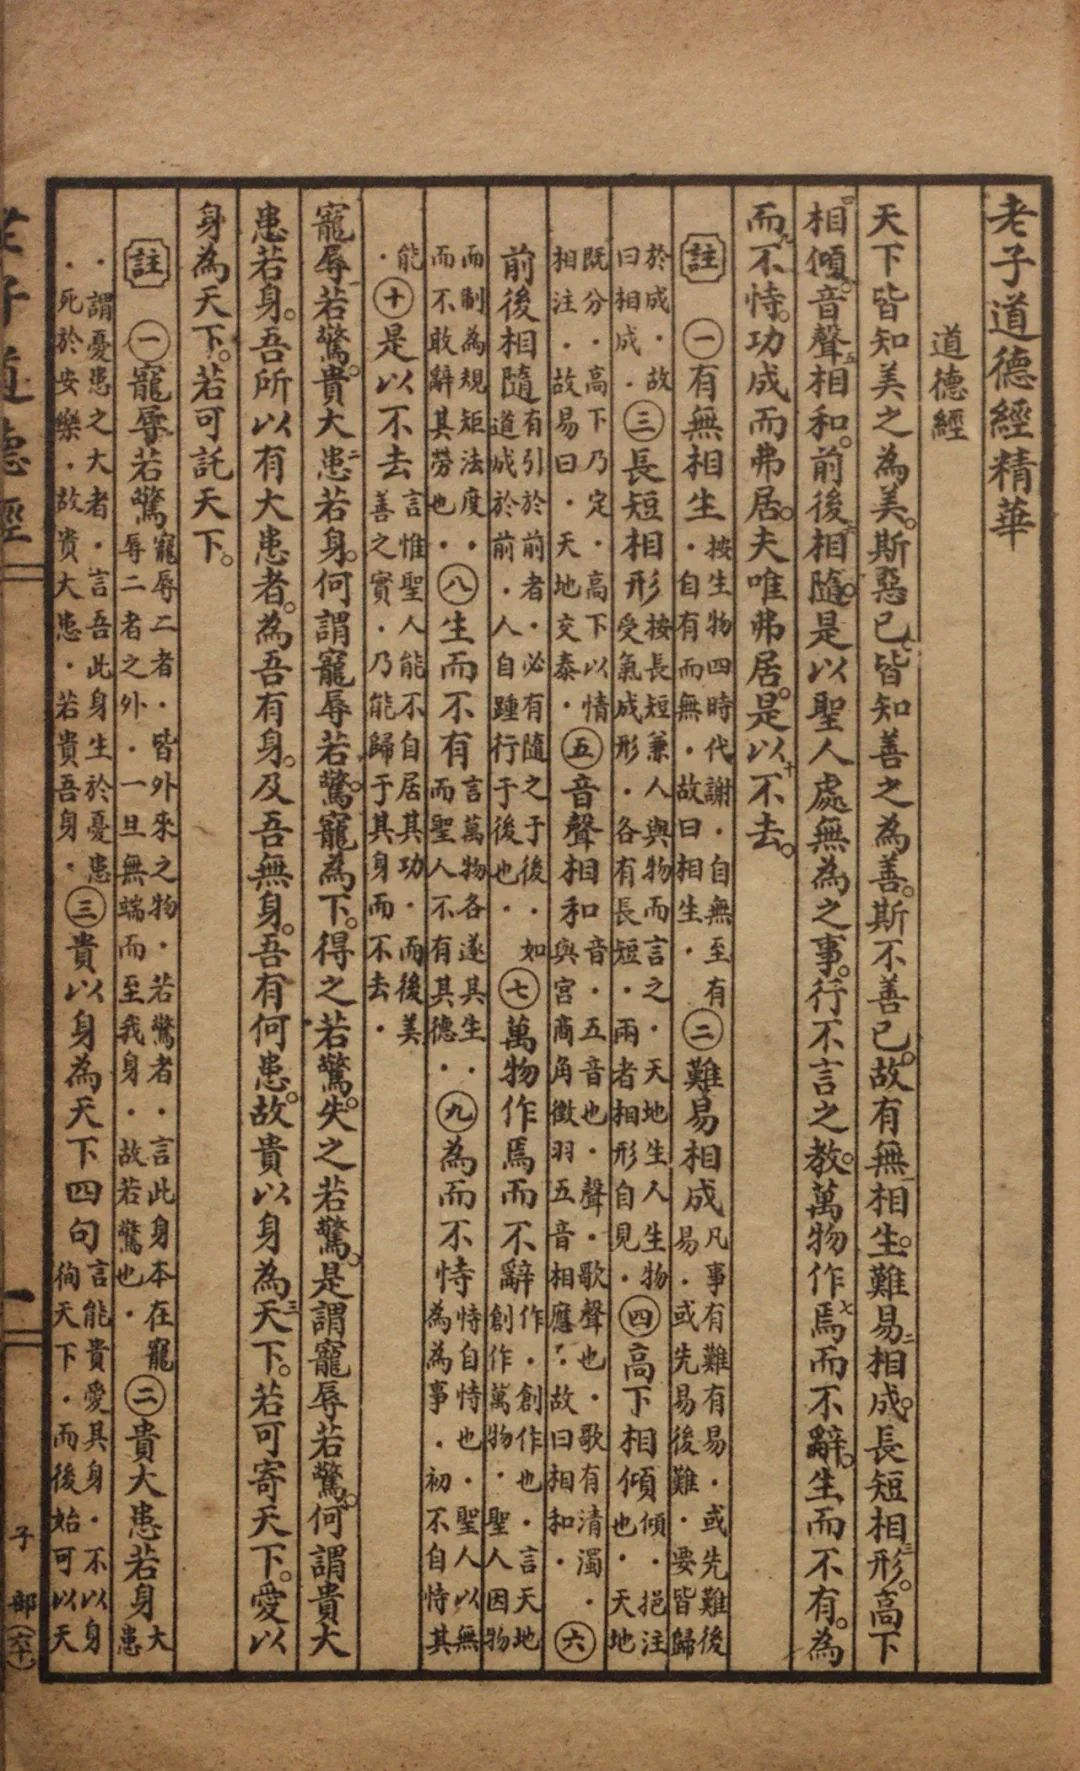 老子道德經精華
道德經
天下皆知美之為美。斯惡已。皆知善之為善。斯不善已。故有無相生。難易相成。長短相形。高下
相傾。音聲相和。前後相隨。是以聖人處無為之事。行不言之教。萬物作焉而不辭。生而不有。為
而不恃。功成而弗居。夫唯弗居。是以不去。
註 ㊀有無相生．按生物四時代謝．自無至有．自有而無．故曰相生．㊁難易相成凡事有難有易．或先難後易．或先易後難．要皆歸
於成．故曰相成．㊂長短相形按長短兼人與物而言之．天地生人生物受氣成形．各有長短．兩者相形自見．㊃高下相傾傾．挹注也．天地
既分．高下乃定．高下以情相注．故易曰．天地交泰．㊄音聲相和音．五音也．聲．歌聲也．歌有清濁．與宮商角徵羽五音相應．故曰相和．㊅
前後相隨有引於前者．必有隨之于後．如道成於前．人自踵行于後也．㊆萬物作焉而不辭作．創作也．言天地創作萬物．聖人因物
而制為規矩法度．而不敢辭其勞也．㊇生而不有言萬物各遂其生而聖人不有其德．㊈為而不恃恃自恃也．聖人以無為為事．初不自恃其
能．㊉是以不去言惟聖人能不自居其功．而後美善之實．乃能歸于其身而不去．
寵辱若驚。貴大患若身。何謂寵辱若驚。寵為下。得之若驚。失之若驚。是謂寵辱若驚。何謂貴大
患若身。吾所以有大患者。為吾有身。及吾無身。吾有何患。故貴以身為天下。若可寄天下。愛以
身為天下。若可託天下。
註 ㊀寵辱若驚寵辱二者．皆外來之物．若驚者．言此身本在寵辱二者之外．一旦無端而至我身．故若驚也．㊁貴大患若身大患
．謂憂患之大者．言吾此身生於憂患．死於安樂．故貴大患．若貴吾身．㊂貴以身為天下四句言能貴愛其身．不以身徇天下．而後始可以天
老子道德經 一 子部